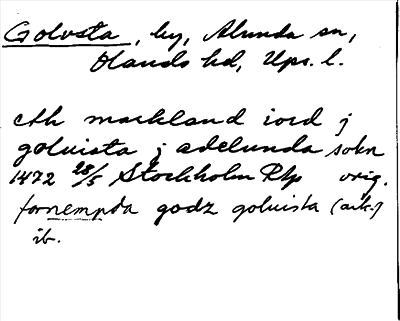 Golvsta, by, Alunda sn,
Olands hd, Ups. l.
eth markland iord j
goluista j adelunda sokn
1472 28/5 Stockholm Rtp orig.
fornempda godz goluista (ack.)
ib.